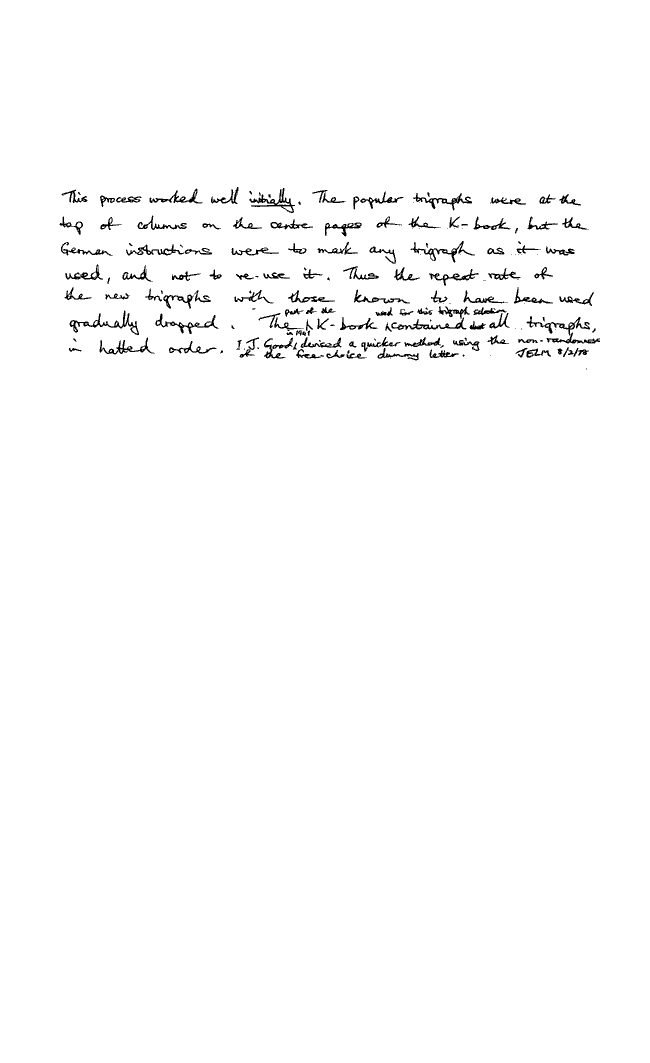 This process worked well initially. The popular trigraphs were at the
top of columns on the centre pages of the K-book, but the
German instructions were to mark any trigraph as it was
used, and not to re-use it. Thus the repeat rate of
the new trigraphs with those known to have been used
part of the used for this trigraph selection
gradually dropped. The K-book contained all trigraphs,
in 1941
in hatted order. I.J. Good, devised a quicker method, using the non-randomness
of the free-choice dummy letter. JELM 8/2/78